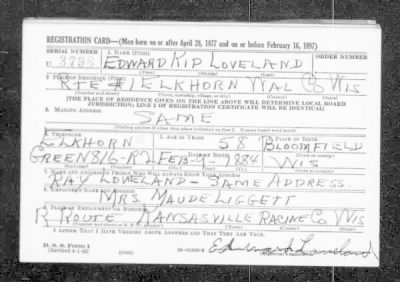 REGISTRATION CARD—(Men born on or after April 28, 1877 and on or before February 16, 1897)
SERIAL NUMBER 1. NAME (Print) ORDER NUMBER
U 3798 EDWARD KID LOVELAND
(First) (Middle) (Last)
2. PLACE OF RESIDENCE (Print)
RTE #1 ELKHORN WAL CO WIS
(Number and street) (Town, township, village, or city) (County) (State)
[THE PLACE OF RESIDENCE GIVEN ON THE LINE ABOVE WILL DETERMINE LOCAL BOARD
JURISDICTION; LINE 2 OF REGISTRATION CERTIFICATE WILL BE IDENTICAL]
3. MAILING ADDRESS
SAME
[Mailing address if other than place indicated on line 2. If same insert word same]
4. TELEPHONE 5. AGE IN YEARS 6. PLACE OF BIRTH
ELKHORN 58 BLOOMFIELD
DATE OF BIRTH (Town or county)
GREEN 816-R2 FEB-9-1884 WIS
(Exchange) (Number) (Mo.) (Day) (Yr.) (State or country)
7. NAME AND ADDRESS OF PERSON WHO WILL ALWAYS KNOW YOUR ADDRESS
RAY LOVELAND-SAME ADDRESS.
8. EMPLOYER'S NAME AND ADDRESS
MRS. MAUDE LIGGETT
9. PLACE OF EMPLOYMENT OR BUSINESS
R ROUTE KANSASVILLE RACINE CO WIS
(Number and street or R. F. D. number) (Town) (County) (State)
I AFFIRM THAT I HAVE VERIFIED ABOVE ANSWERS AND THAT THEY ARE TRUE.
D. S. S. Form 1
(Revised 4-1-42) (over)
Edward Loveland